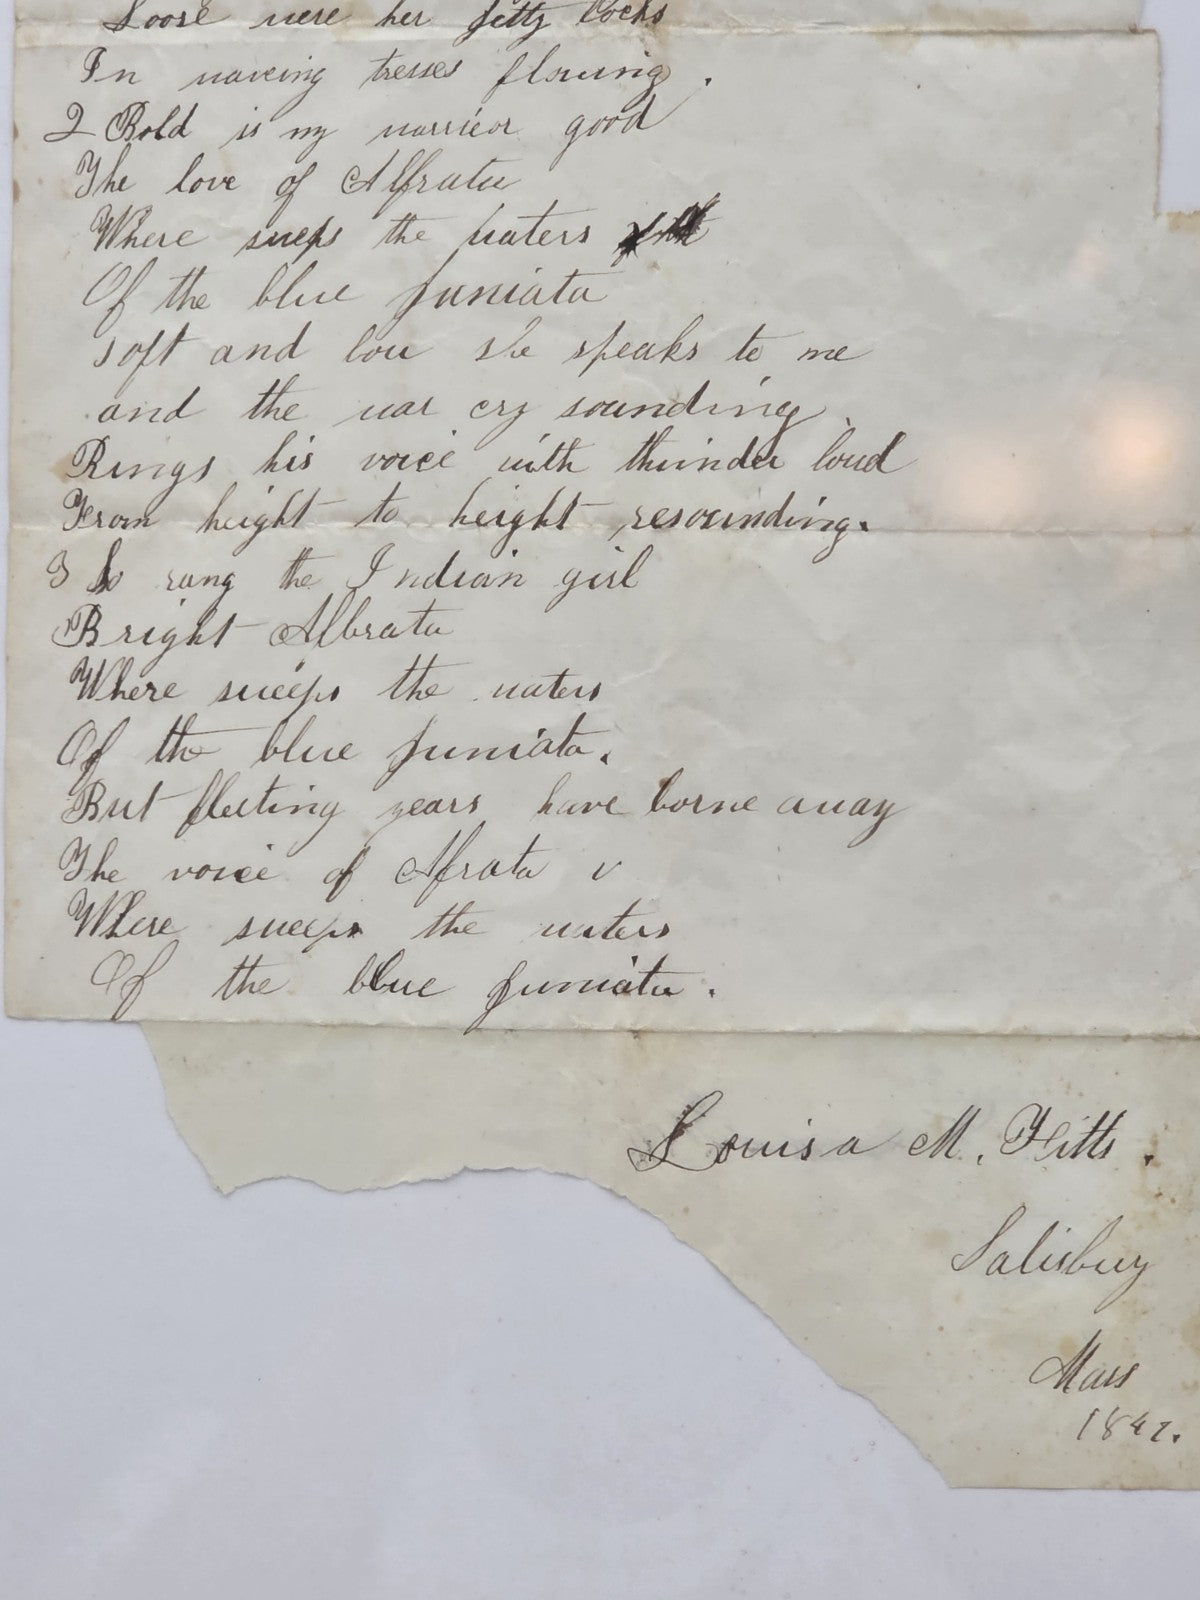 Loose were her jetty locks
In waveing tresses flowing.
2 Bold is my warrior good
The love of Alfrata
Where sweeps the waters
Of the blue Juniata
soft and low she speaks to me
and the war cry sounding.
Rings his voice with thunder loud
From height to height resounding.
3 So sang the Indian girl
Bright Alfrata
Where sweeps the waters
Of the blue Juniata.
But fleeting years have borne away
The voice of Alfrata
Where sweeps the waters
Of the blue Juniata.
Louisa M. Fitts.
Salisbury
Mass